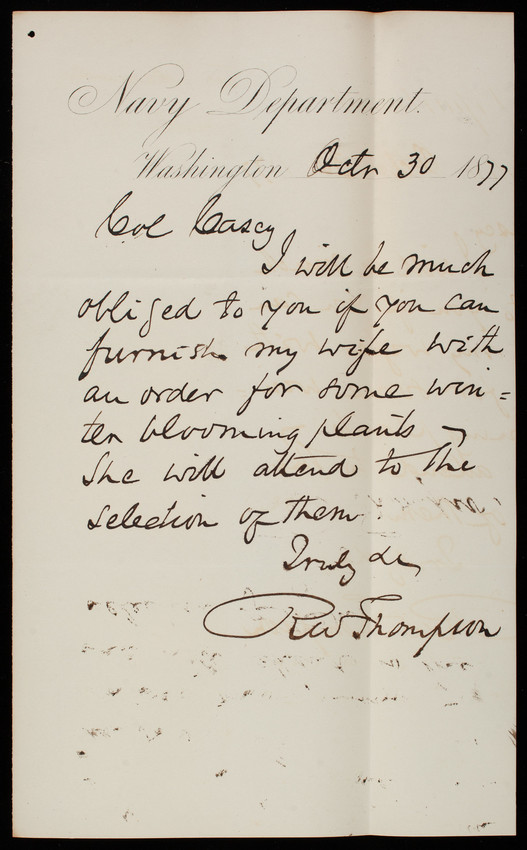 Navy Department.
Washington Octr 30 1877
Col Casey
I will be much
obliged to you if you can
furnish my wife with
an order for some win=
ter blooming plants –
She will attend to the
selection of them.
Truly &c
RW Thompson